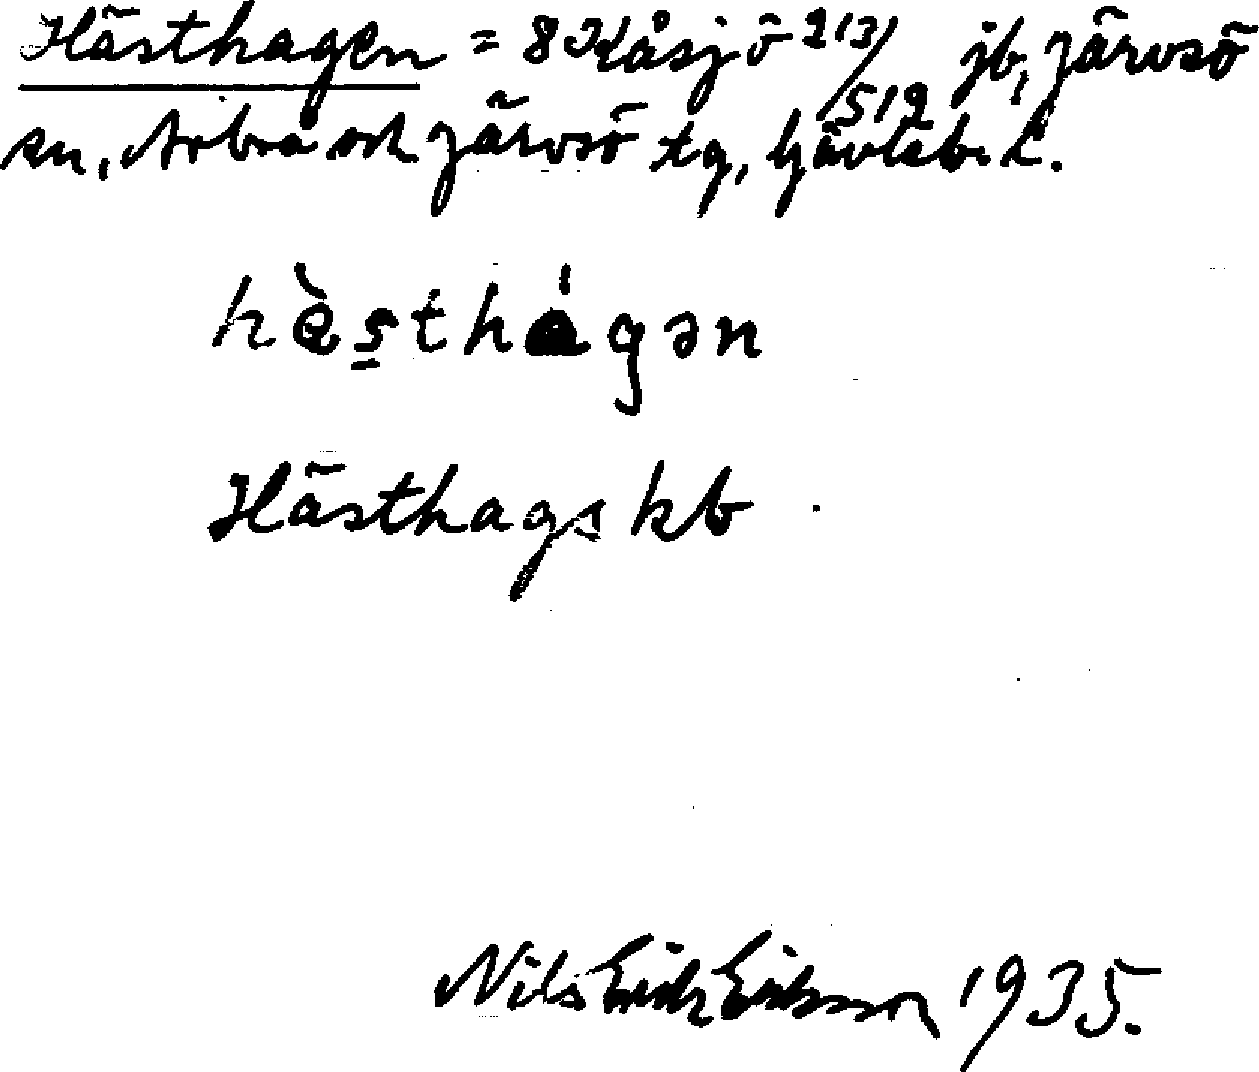 Hästhagen = 8 Kåsjö 213/512 jb, Järvsö
sn, Arbrå och Järvsö tg, Gävleb. l.
hèsthágən
Hästhags kb
Nils Erik Eriksson 1935.